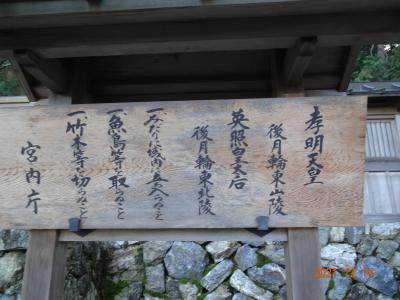 孝明天皇
後月輪東山陵
英照皇太后
後月輪東北陵
一、みだりに域内に立ち入らぬこと
一、魚鳥等を取らぬこと
一、竹木等を切らぬこと
宮内庁